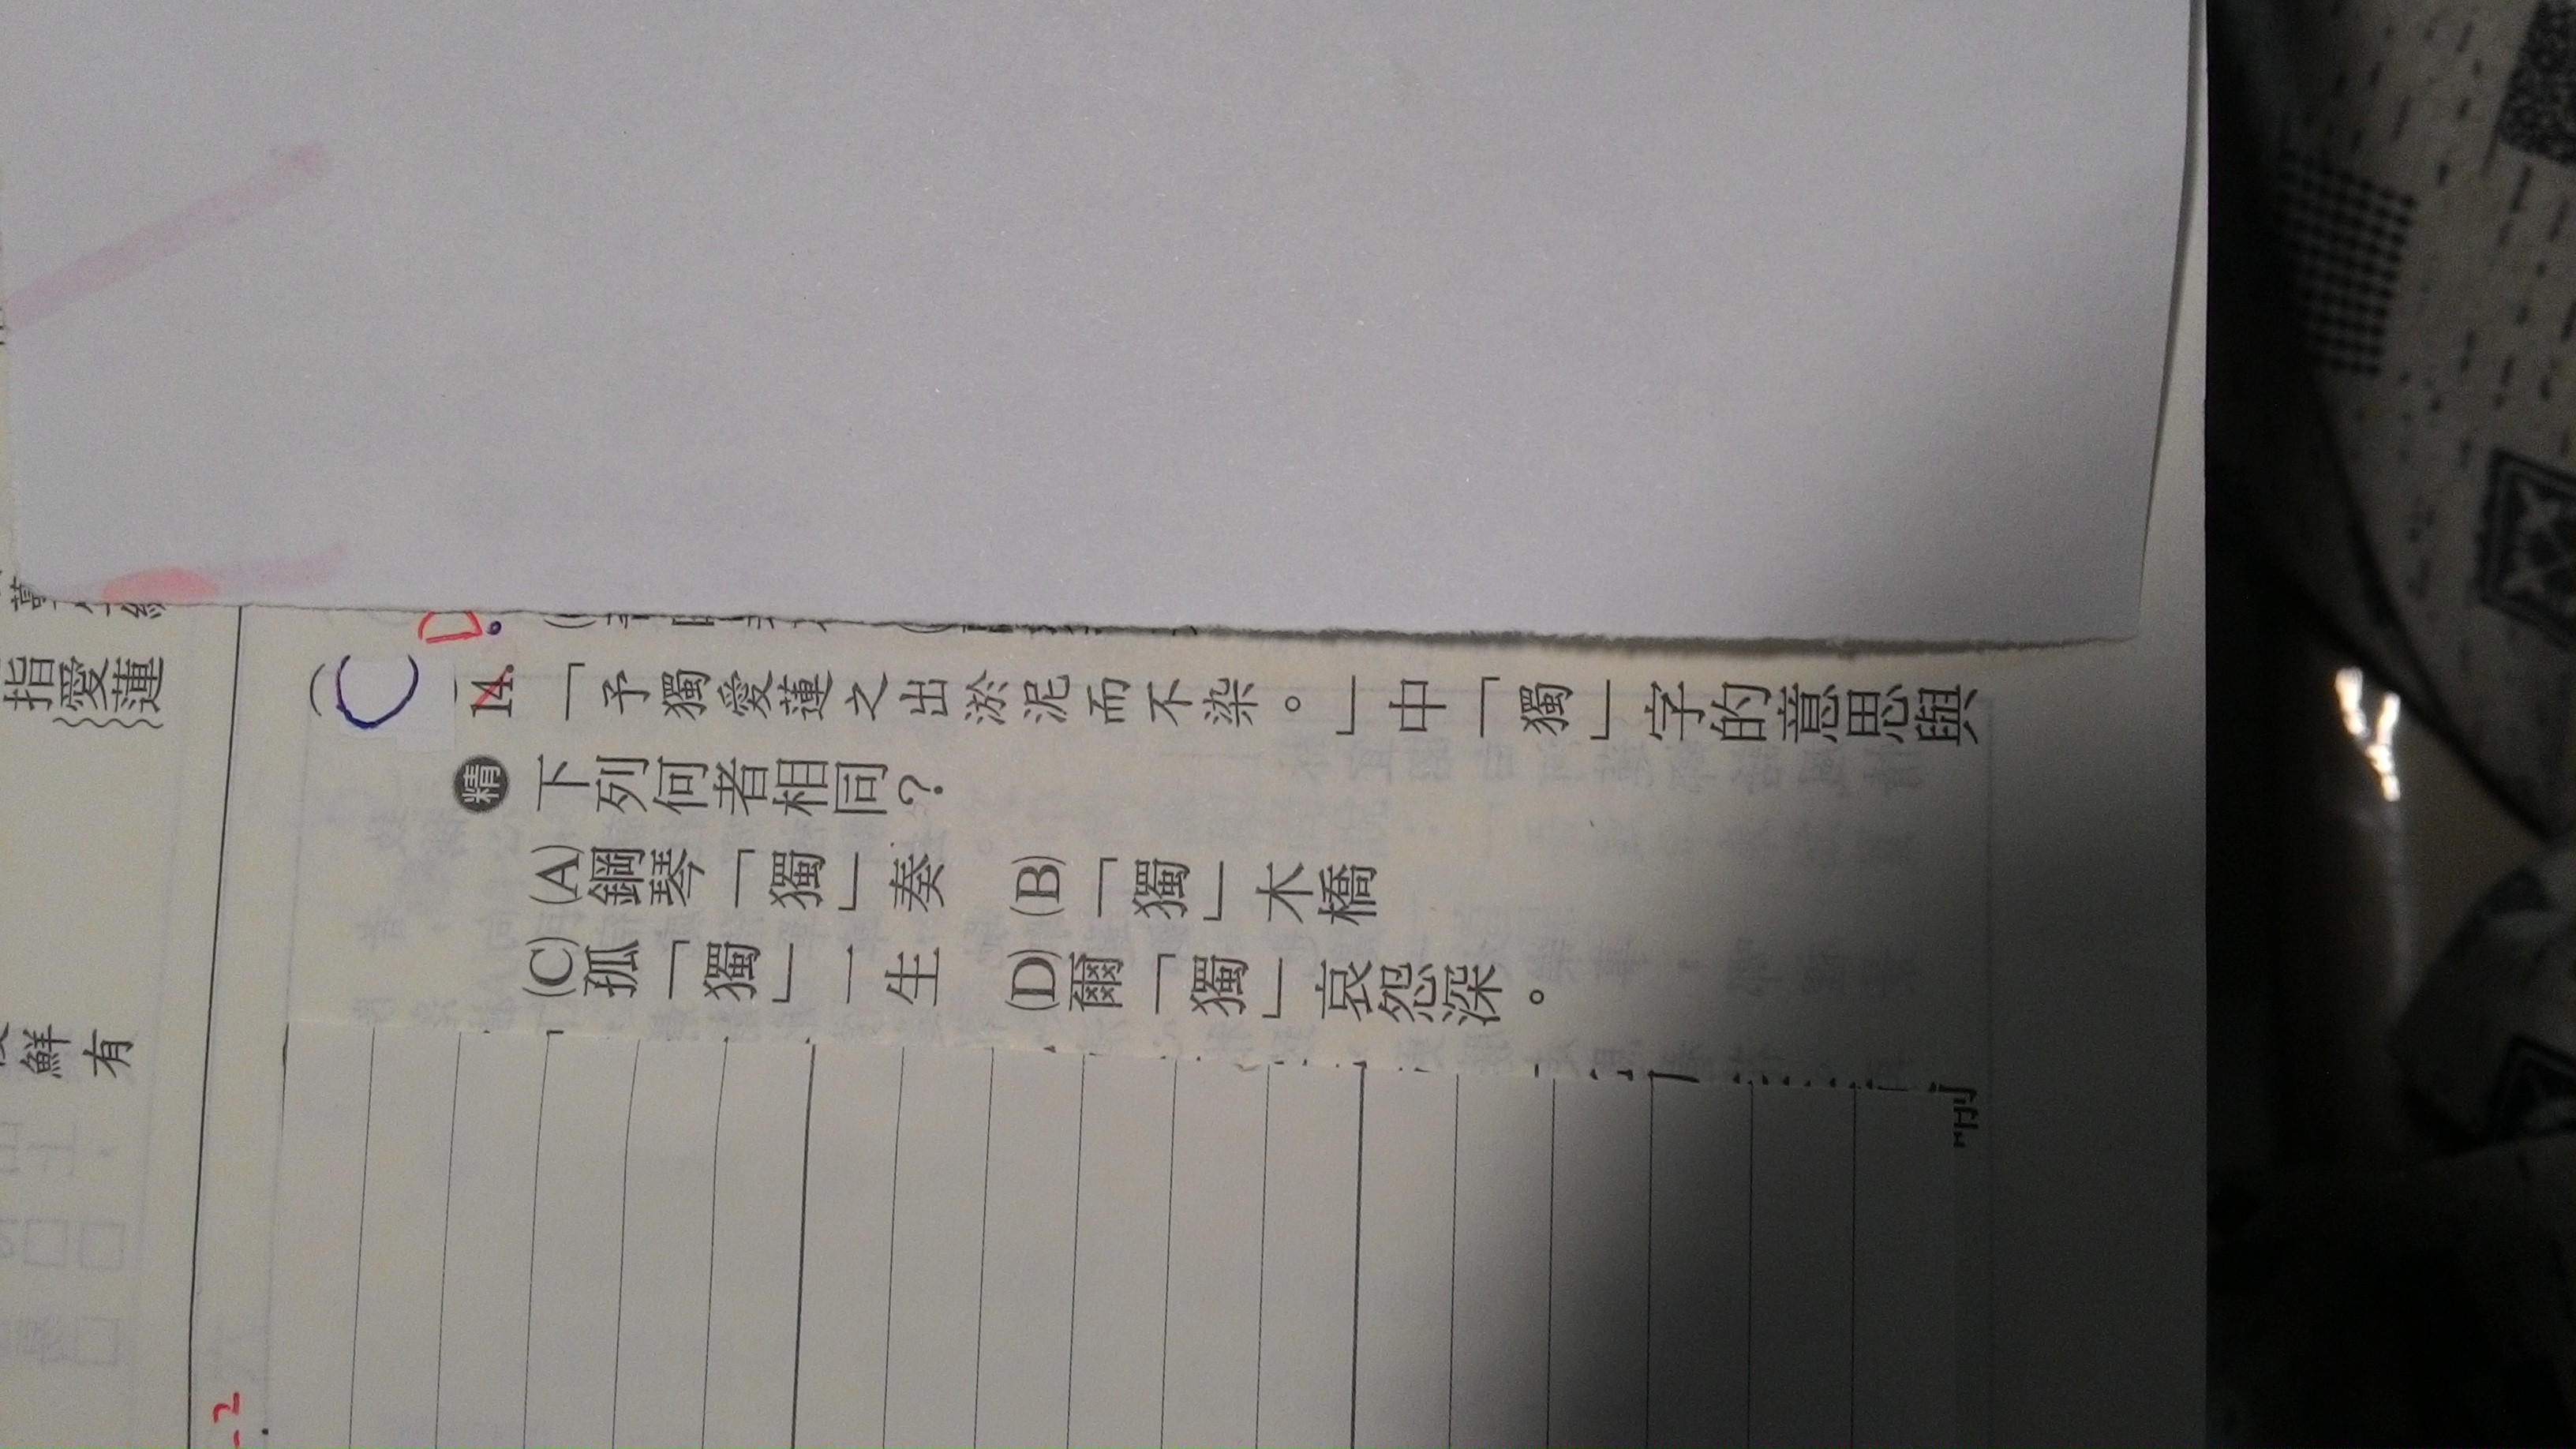 指愛蓮
鮮
有
C
D.
14.「予獨愛蓮之出淤泥而不染。」中「獨」字的意思與
精 下列何者相同？
(A)鋼琴「獨」奏 (B)「獨」木橋
(C)孤「獨」一生 (D)爾「獨」哀怨深。
-2